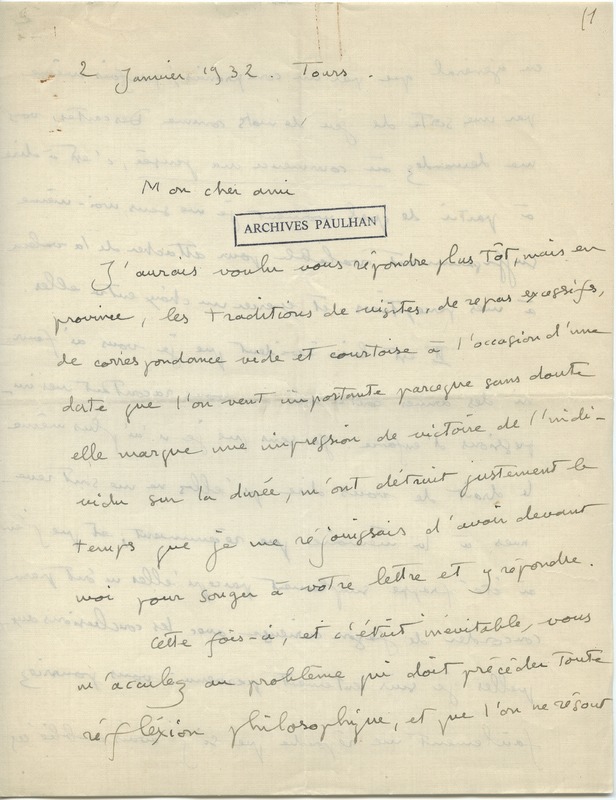 (1
2 Janvier 1932. Tours.
Mon cher ami
ARCHIVES PAULHAN
J'aurais voulu vous répondre plus tôt, mais en
province, les traditions de visites, de repas excessifs,
de correspondance vide et courtoise à l'occasion d'une
date que l'on veut importante parceque sans doute
elle marque une impression de victoire de l'indi-
vidu sur la durée, m'ont détruit justement le
temps que je me réjouissais d'avoir devant
moi pour songer à votre lettre et y répondre.
Cette fois-ci, et c'était inévitable, vous
m'acculez au problème qui doit précéder toute
réfléxion philosophique, et que l'on ne résout